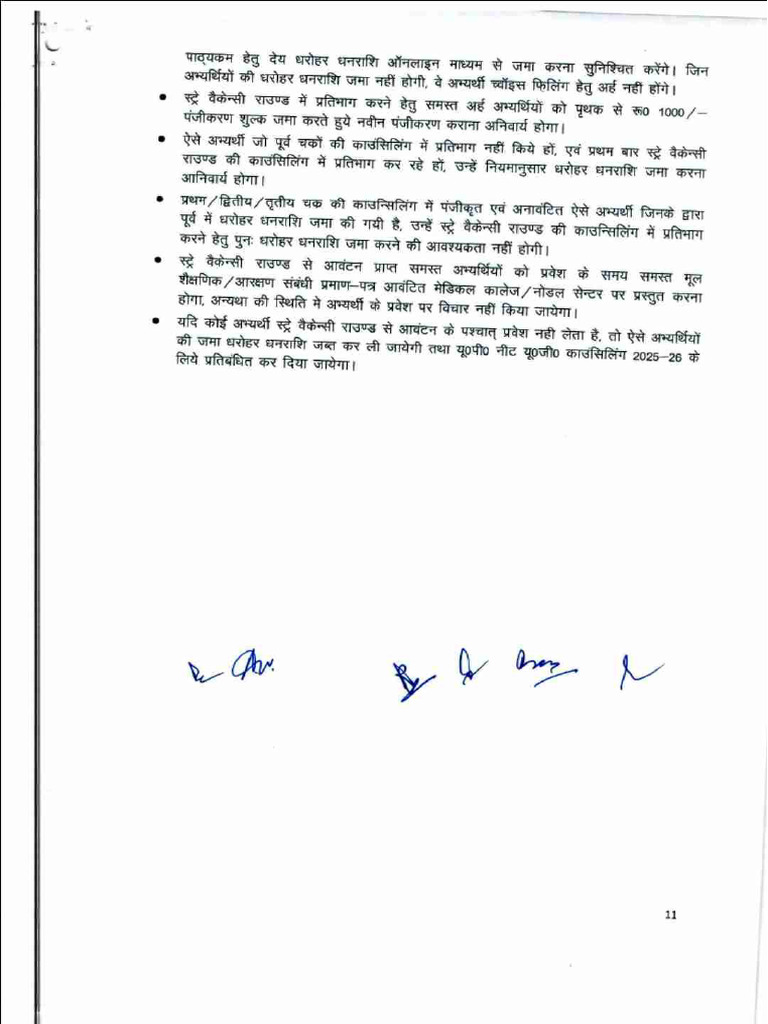 पाठ्यकम हेतु देय धरोहर धनराशि ऑनलाइन माध्यम से जमा करना सुनिश्चित करेंगे। जिन
अभ्यर्थियों की धरोहर धनराशि जमा नहीं होगी, वे अभ्यर्थी च्वॉइस फिलिंग हेतु अर्ह नहीं होंगे।
• स्ट्रे वैकेन्सी राउण्ड में प्रतिभाग करने हेतु समस्त अर्ह अभ्यर्थियों को पृथक से रू0 1000/–
पंजीकरण शुल्क जमा करते हुये नवीन पंजीकरण कराना अनिवार्य होगा।
• ऐसे अभ्यर्थी जो पूर्व चकों की काउंसिलिंग में प्रतिभाग नहीं किये हों, एवं प्रथम बार स्ट्रे वैकेन्सी
राउण्ड की काउंसिलिंग में प्रतिभाग कर रहे हों, उन्हें नियमानुसार धरोहर धनराशि जमा करना
आनिवार्य होगा।
• प्रथम/द्वितीय/तृतीय चक की काउन्सिलिंग में पंजीकृत एवं अनावंटित ऐसे अभ्यर्थी जिनके द्वारा
पूर्व में धरोहर धनराशि जमा की गयी है, उन्हें स्ट्रे वैकेन्सी राउण्ड की काउन्सिलिंग में प्रतिभाग
करने हेतु पुनः धरोहर धनराशि जमा करने की आवश्यकता नहीं होगी।
• स्ट्रे वैकेन्सी राउण्ड से आवंटन प्राप्त समस्त अभ्यर्थियों को प्रवेश के समय समस्त मूल
शैक्षणिक/आरक्षण संबंधी प्रमाण–पत्र आवंटित मेडिकल कालेज/नोडल सेन्टर पर प्रस्तुत करना
होगा, अन्यथा की स्थिति मे अभ्यर्थी के प्रवेश पर विचार नहीं किया जायेगा।
• यदि कोई अभ्यर्थी स्ट्रे वैकेन्सी राउण्ड से आवंटन के पश्चात् प्रवेश नही लेता है, तो ऐसे अभ्यर्थियों
की जमा धरोहर धनराशि जब्त कर ली जायेगी तथा यू0पी0 नीट यू0जी0 काउंसिलिंग 2025–26 के
लिये प्रतिबंधित कर दिया जायेगा।
11